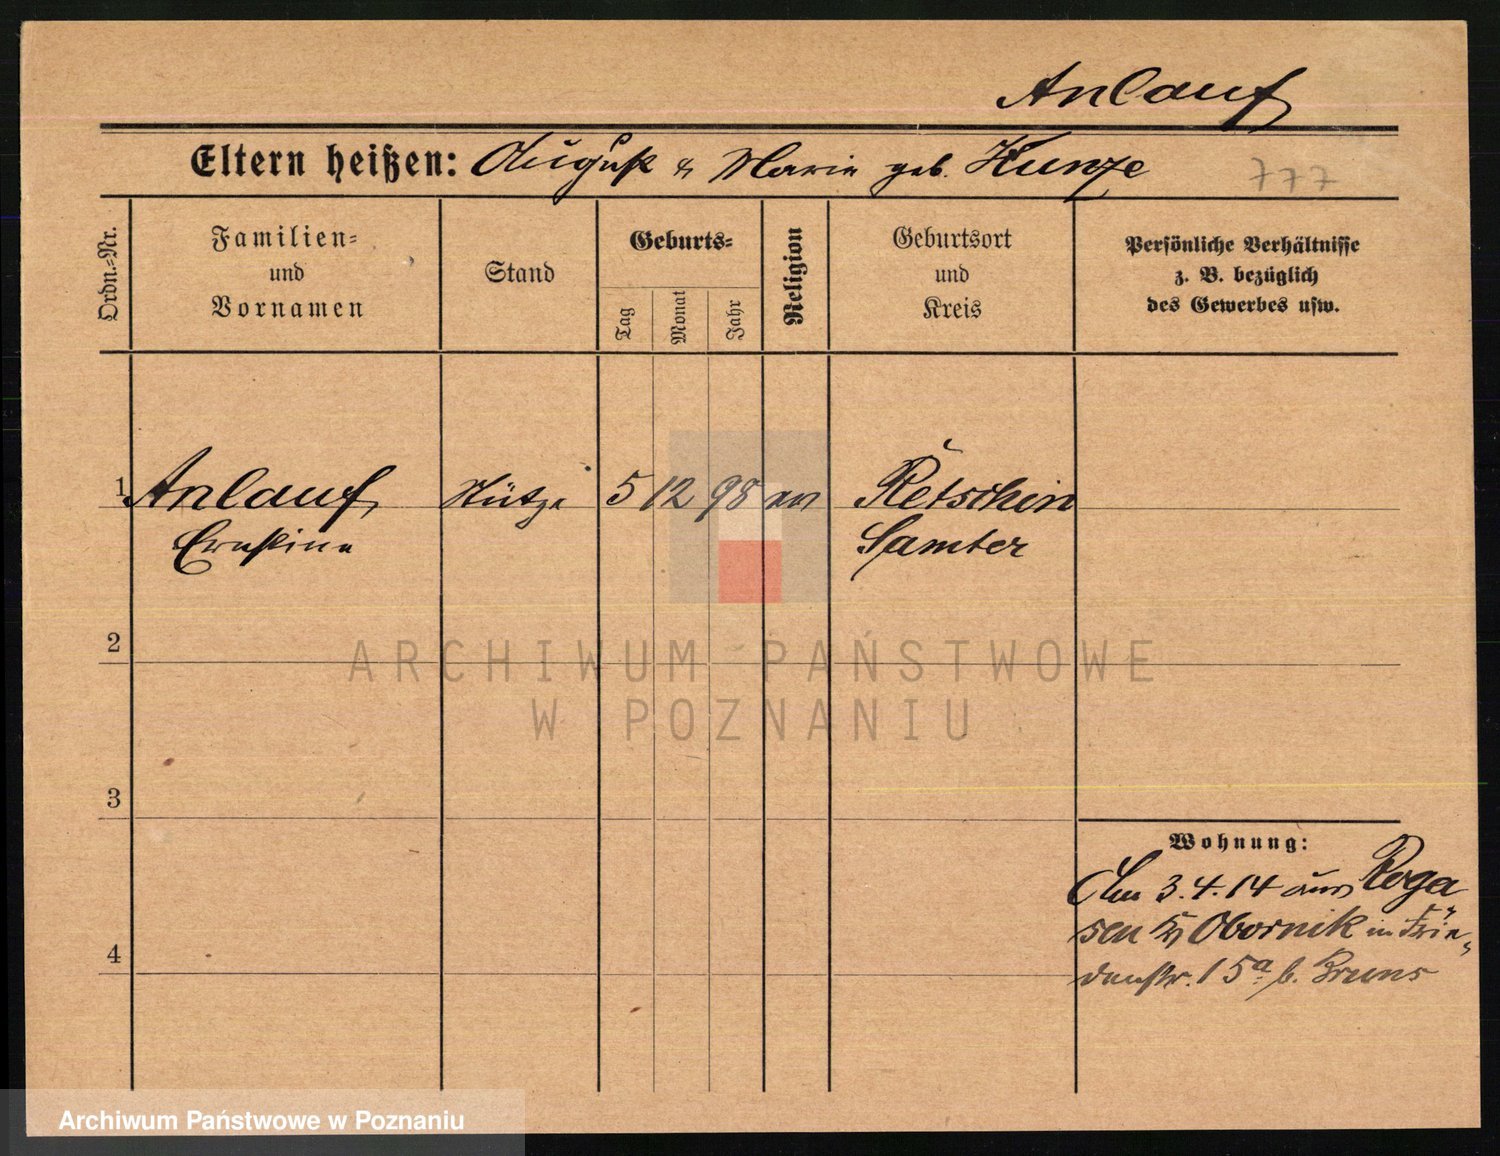 Anlauf
Eltern heißen: August & Marie geb. Kunze
777
Ordn.-Nr.
Familien-
und
Vornamen
Stand
Geburts-
Tag
Monat
Jahr
Religion
Geburtsort
und
Kreis
Persönliche Verhältnisse
z. B. bezüglich
des Gewerbes usw.
1 Anlauf Stütze 5 12 98 ev Retschin
Ernstine Samter
2
ARCHIWUM PAŃSTWOWE
W POZNANIU
3
Wohnung:
Am 3.4.14 aus Roga
sen Kr Obornik in Frie-
denstr. 15a b. Bruns
4
Archiwum Państwowe w Poznaniu